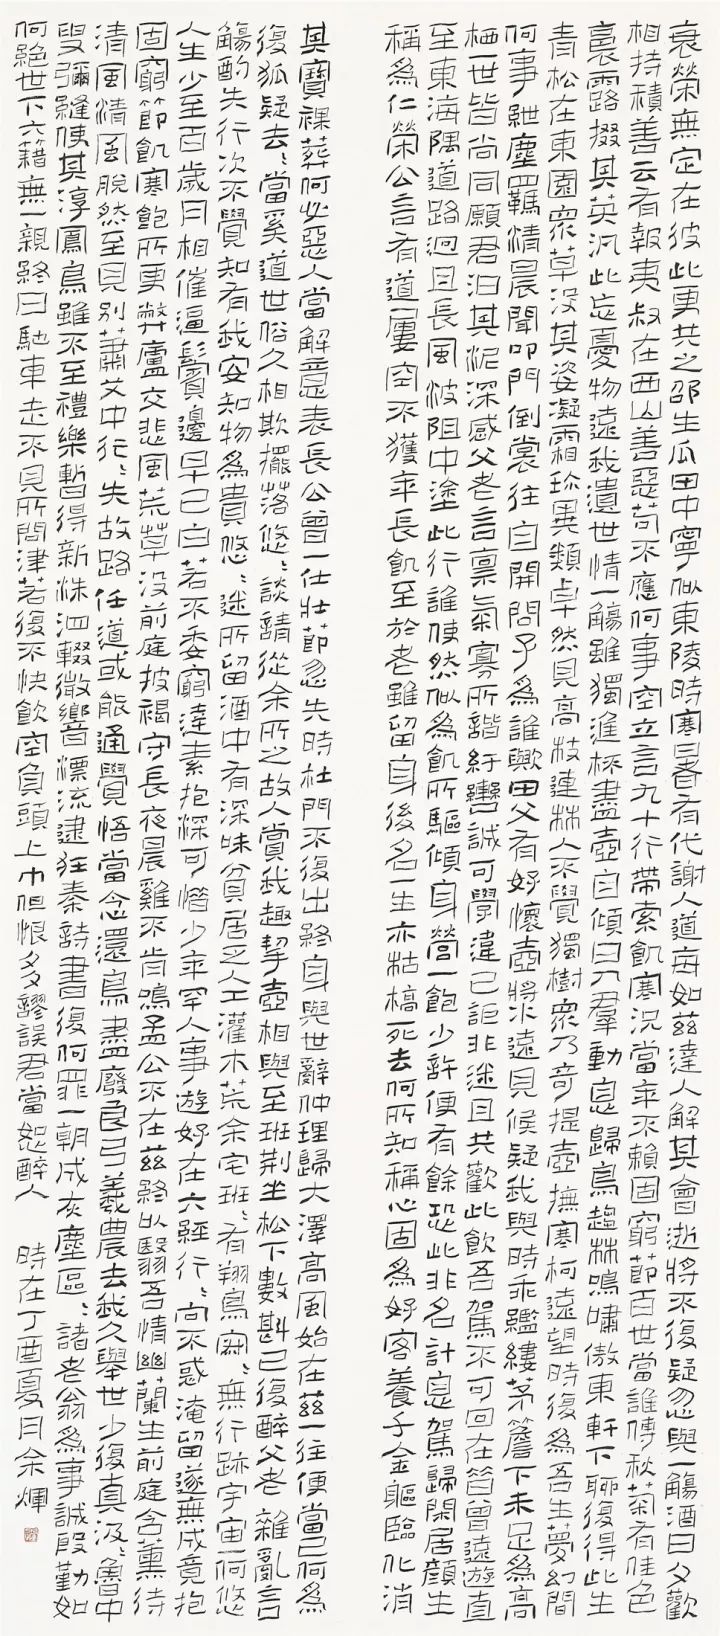 衰榮無定在彼此更共之邵生瓜田中寧似東陵時寒暑有代謝人道每如茲達人解其會逝將不復疑忽與一觴酒日夕歡
相持積善云有報夷叔在西山善惡苟不應何事空立言九十行帶索飢寒況當年不賴固窮節百世當誰傳秋菊有佳色
裛露掇其英汎此忘憂物遠我遺世情一觴雖獨進杯盡壺自傾日入羣動息歸鳥趨林鳴嘯傲東軒下聊復得此生
青松在東園眾草沒其姿凝霜殄異類卓然見高枝連林人不覺獨樹眾乃奇提壺撫寒柯遠望時復為吾生夢幻間
何事紲塵羈清晨聞叩門倒裳往自開問子為誰歟田父有好懷壺漿遠見候疑我與時乖襤縷茅簷下未足為高
栖一世皆尚同願君汩其泥深感父老言稟氣寡所諧紆轡誠可學違己詎非迷且共歡此飲吾駕不可回在昔曾遠遊直
至東海隅道路迥且長風波阻中塗此行誰使然似為飢所驅傾身營一飽少許便有餘恐此非名計息駕歸閑居顏生
稱為仁榮公言有道屢空不獲年長飢至於老雖留身後名一生亦枯槁死去何所知稱心固為好客養千金軀臨化消
其寶裸葬何必惡人當解意表長公曾一仕壯節忽失時杜門不復出終身與世辭仲理歸大澤高風始在茲一往便當已何為
復狐疑去〻當奚道世俗久相欺擺落悠〻談請從余所之故人賞我趣挈壺相與至班荊坐松下數斟已復醉父老雜亂言
觴酌失行次不覺知有我安知物為貴悠〻迷所留酒中有深味貧居乏人工灌木荒余宅班〻有翔鳥寂〻無行跡宇宙一何悠
人生少至百歲月相催逼鬢邊早已白若不委窮達素抱深可惜少年罕人事遊好在六經行〻向不惑淹留遂無成竟抱
固窮節飢寒飽所更弊廬交悲風荒草沒前庭披褐守長夜晨雞不肯鳴孟公不在茲終以翳吾情幽蘭生前庭含薰待
清風清風脫然至見別蕭艾中行〻失故路任道或能通覺悟當念還鳥盡廢良弓羲農去我久舉世少復真汲〻魯中
叟彌縫使其淳鳳鳥雖不至禮樂暫得新洙泗輟微響漂流逮狂秦詩書復何罪一朝成灰塵區〻諸老翁為事誠殷勤如
何絕世下六籍無一親終日馳車走不見所問津若復不快飲空負頭上巾但恨多謬誤君當恕醉人 時在丁酉夏月余輝